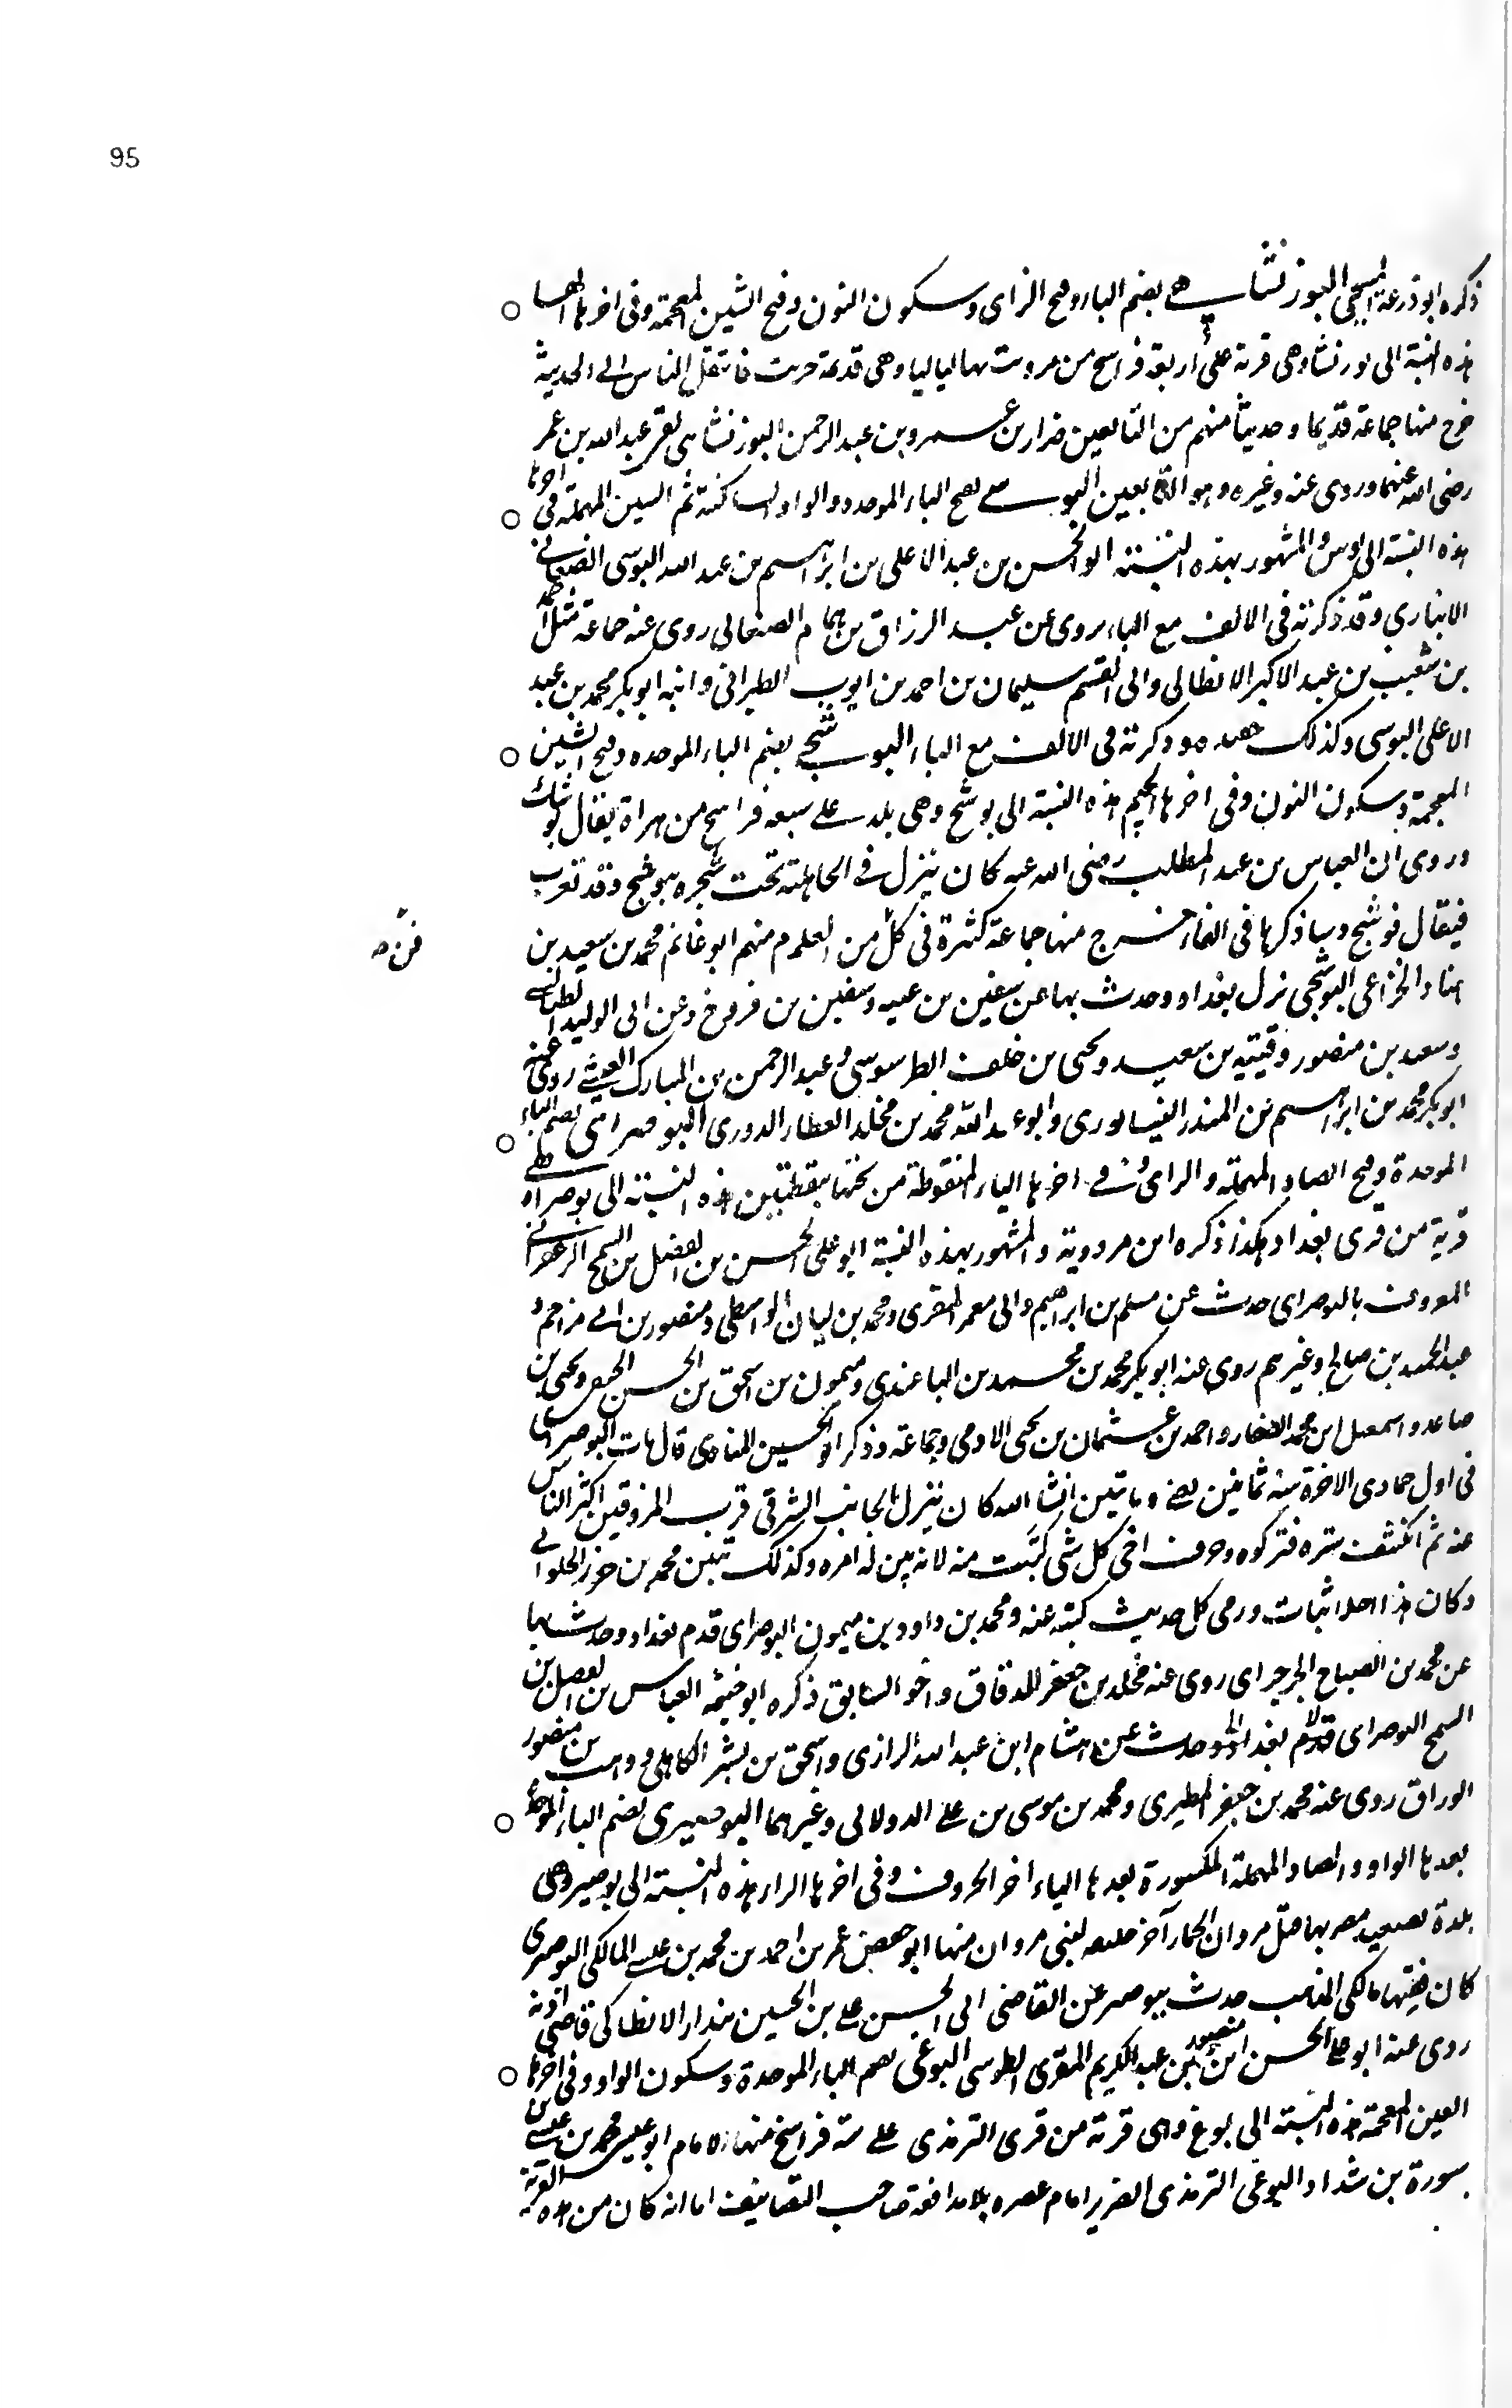 95
ذكره ابو زرعة السنجى البوزنشاهى بضم الباء وفتح الزاى وسكون النون وفتح الشين المعجمة وفى اخرها الهاء
هذه النسبة الى بوزنشاه وهى قرية على اربعة فراسخ من مرو بت بها ليالى وهى قديمة خربت فانتقل الناس الى الحديثة
خرج منها جماعة قديما وحديثا منهم من التابعين ضرار بن عمرو بن عبد الرحمن البوزنشاهى لقى عبد الله بن عمر
رضى الله عنهما وروى عنه وغيره وهو من التابعين البوسى بفتح الباء الموحدة والواو الساكنة ثم السين المهملة فى اخرها
هذه النسبة الى بوس والمشهور بهذه النسبة ابو الحسن بن عبد الاعلى بن ابراهيم بن عبد الله البوسى الصنعانى
الانبارى وقد ذكرته فى الالف مع الباء يروى عن عبد الرزاق بن همام الصنعانى روى عنه جماعة مثل احمد
بن شعيب بن عبد الاكبر الانطاكى وابى القسم سليمان بن احمد بن ايوب الطبرانى وابنه ابو بكر محمد بن عبد
الاعلى البوسى وكذلك حفيده وذكرته فى الالف مع الباء البوشنجى بضم الباء الموحدة وفتح الشين
المعجمة وسكون النون وفى اخرها الجيم هذه النسبة الى بوشنج وهى بلدة على سبعة فراسخ من هراة يقال بوشنك
وروى ان العباس بن عبد المطلب رضى الله عنه كان ينزل فى الجاهلية تحت شجره ببوشنج وقد تعرب
فيقال فوشنج وساذكرها فى الفاء خرج منها جماعة كثيرة فى كل فن من العلوم منهم ابو غانم محمد بن سعيد بن
هناد الخزاعى البوشنجى نزل بغداد وحدث بها عن سفين بن عيينة وسفين بن فروخ وعن ابى الوليد الطيالسى
وسعيد بن منصور وقتيبه بن سعيد ويحيى بن خلف الطرسوسى وعبد الرحمن بن المبارك العيشى روى عنه
ابو بكر محمد بن ابراهيم بن المنذر النيسابورى وابو عبد الله محمد بن مخلد العطار الدورى البوصرايى بضم الباء
الموحدة وفتح الصاد المهملة والراء وفى اخرها الياء المنقوطة من تحتها بنقطتين هذه النسبة الى بوصرا وهى
قرية من قرى بغداد هكذا ذكره ابن مردوية والمشهور بهذه النسبة ابو على الحسن بن الفضل بن السمح الزعفرانى
المعروف بالبوصراى حدث عن مسلم بن ابراهيم وابى معمر المقرى ومحمد بن ابان الواسطى ومنصور بن ابى مزاحم و
عبد الحميد بن صالح وغيرهم روى عنه ابو بكر محمد بن محمد بن الباغندى وميمون بن اسحق بن الحسن الحنفى ويحيى بن
صاعد واسمعيل ابن محمد الصفار واحمد بن عثمان بن يحيى الادمى وجماعة وذكر ابو الحسين المنادى قال مات البوصراى
فى اول جمادى الاخرة سنة ثمانين يعنى ومايتين انشا الله كان ينزل الجانب الشرقى قرب المزوقين اكثر الناس
عنه ثم انكشف ستره فتركوه وخرق اخى كل شى كتبت منه لانه تبين له امره وكذلك تبين محمد بن حرز الحلوانى
وكان هذا احد الاثبات ورمى كل حديث كتبه عنه ومحمد بن داود بن ميمون البوصراى قدم بغداد وحدث بها
عن محمد بن الصباح الجرجراى روى عنه مخلد بن جعفر الدقاق واخو السابق ذكره ابو خيثمه العباس بن الفضل بن
السمح البوصراى قدم بغداد وحدث عن هشام ابن عبد الله الرازى واسحق بن بشر الكاهلى ووهب بن منصور
الوراق روى عنه محمد بن جعفر المطيرى ومحمد بن موسى بن على الدولابى وغيرهما البوصيرى بضم الباء الموحدة
بعدها الواو والصاد المهملة المكسورة بعدها الياء اخر الحروف وفى اخرها الراء هذه النسبة الى بوصير وهى
بلدة بصعيد مصر بها قتل مروان الحمار آخر خليفه لبنى مروان منها ابو حفص عمر بن احمد بن محمد بن عيسى المالكى البوصيرى
كان فقيها مالكى المذهب حدث ببوصير عن القاضى ابى الحسن على بن الحسين بندار الانطاكى قاضى اذنة
روى عنه ابو على الحسن ابن منصور بن عبد الكريم المقرى الطوسى البوغى بضم الباء الموحدة وسكون الواو وفى اخرها
الغين المعجمة هذه النسبة الى بوغ وهى قرية من قرى الترمذى على ستة فراسخ منها الامام ابو عيسى محمد بن عيسى بن
سورة بن شداد البوغى الترمذى الضرير امام عصره بلا مدافعة صاحب التصانيف اما انه كان من هذه القرية